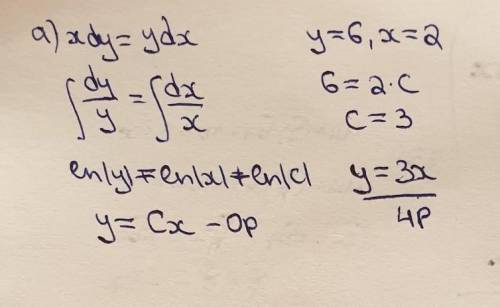 a) xdy = ydx
∫ dy/y = ∫ dx/x
ln|y| = ln|x| + ln|C|
y = Cx - ОР
y = 6, x = 2
6 = 2·C
C = 3
y = 3x
ЧР